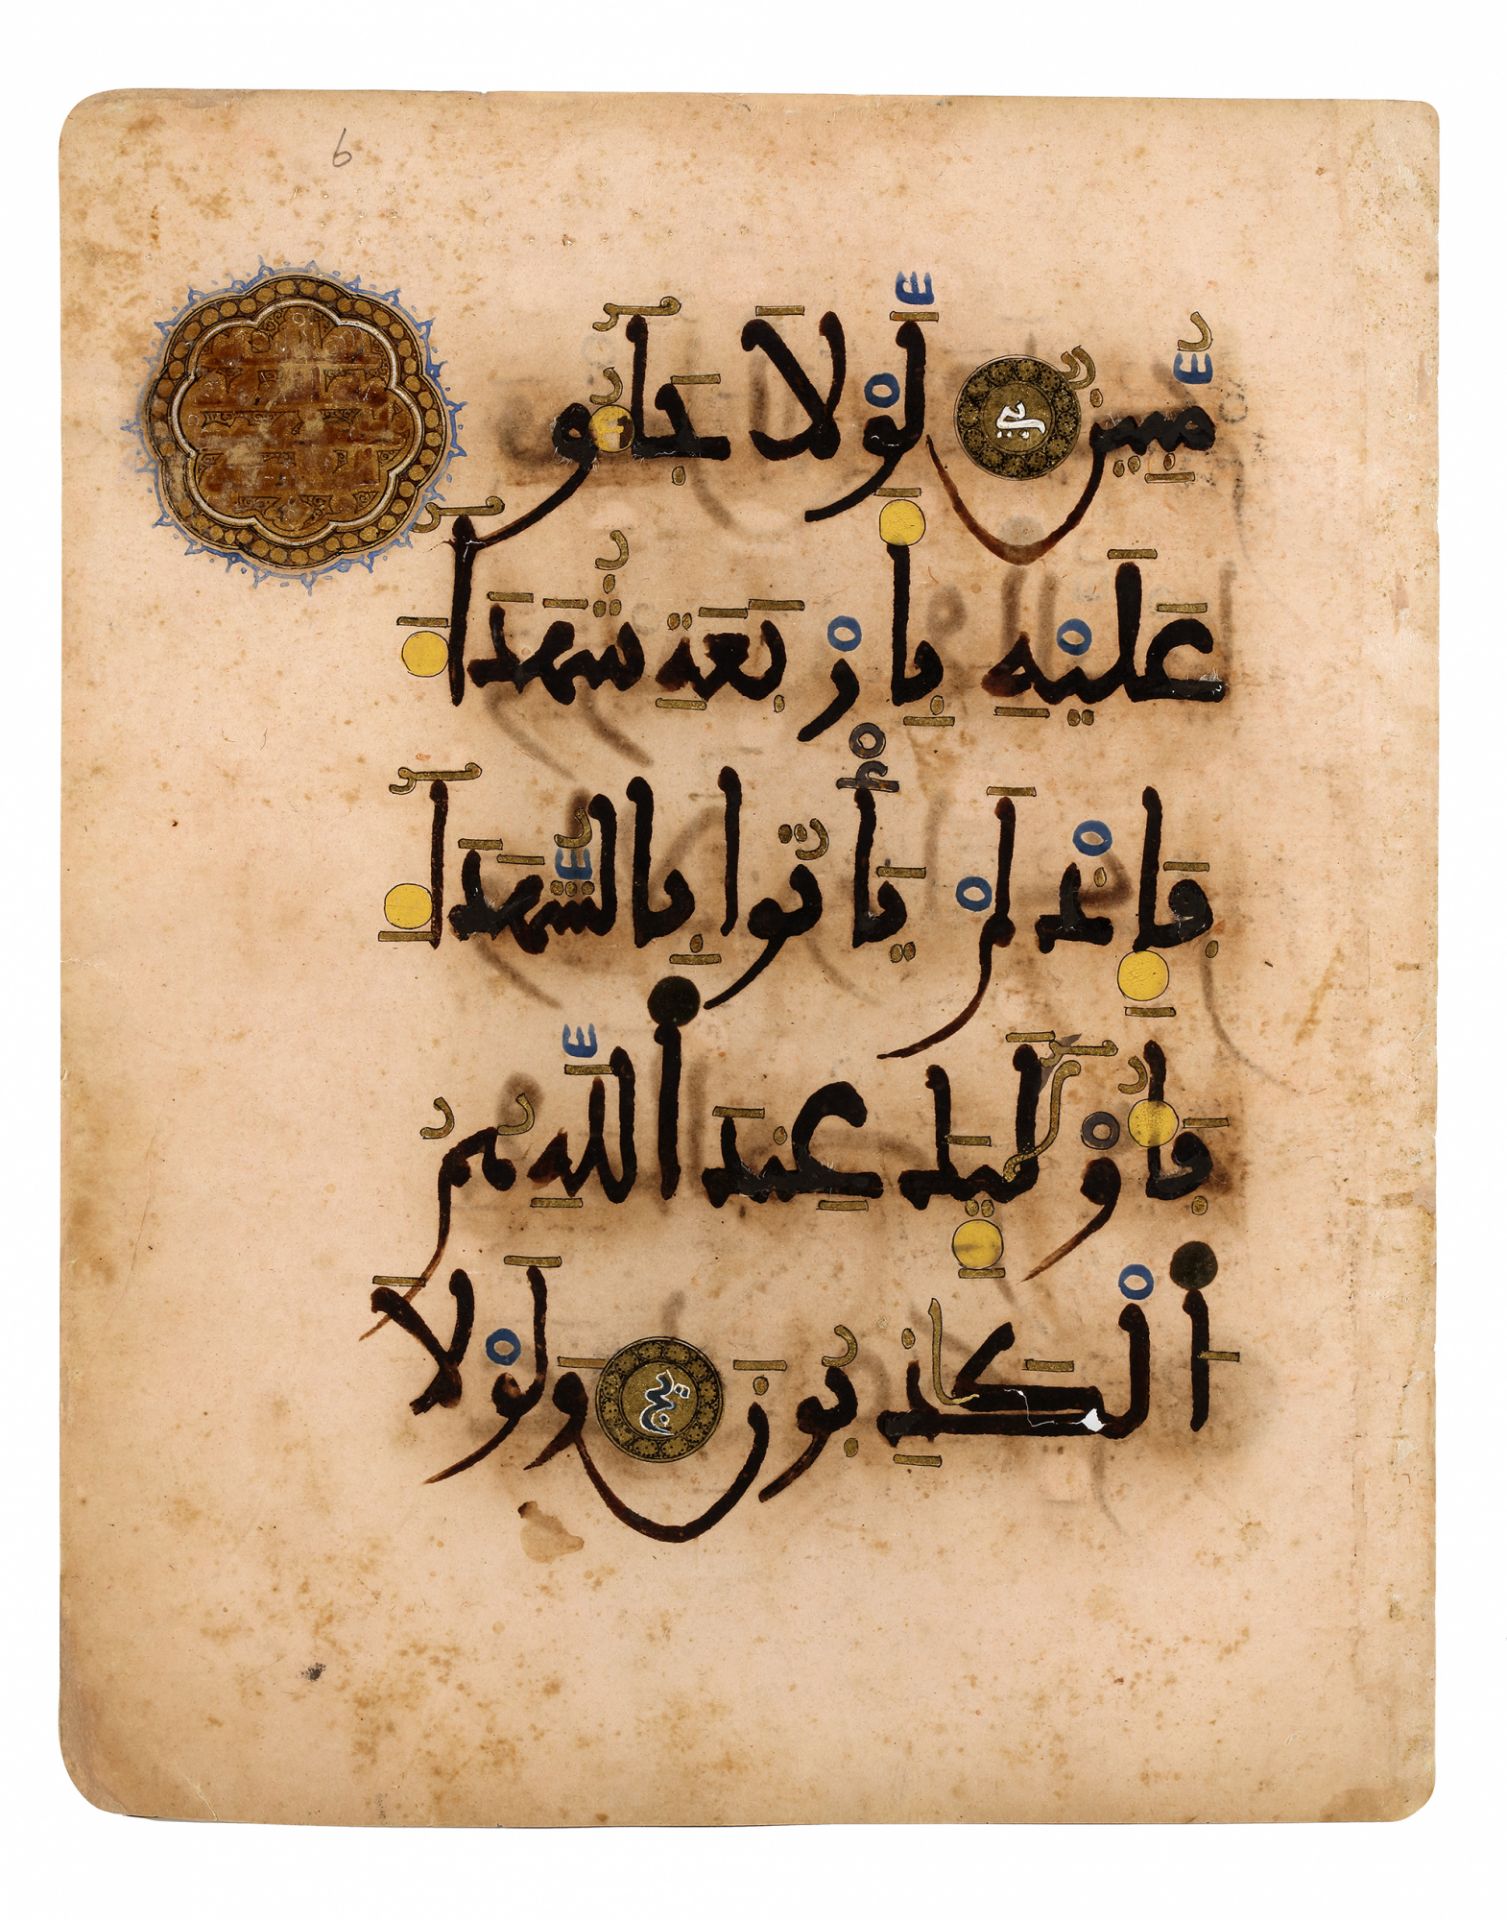 6
مُّبِينٌ لَّوْلَا جَآءُو
عَلَيْهِ بِأَرْبَعَةِ شُهَدَآءَ
فَإِذْ لَمْ يَأْتُوا بِالشُّهَدَآءِ
فَأُوْلَٰٓئِكَ عِندَ ٱللَّهِ هُمُ
ٱلْكَٰذِبُونَ وَلَوْلَا